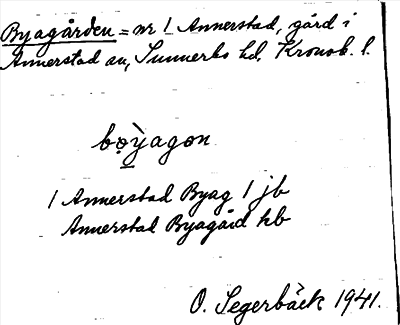 Byagården = nr 1 Annerstad, gård i
Annerstad sn, Sunnerbo hd, Kronob. l.
bo̤ỳagon
1 Annerstad Byag 1 jb
Annerstad Byagård kb
O. Segerbäck 1941.